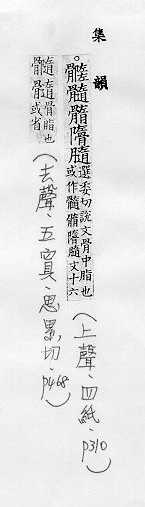 集韻
。髓膸選委切說文骨中脂也
或作髓膸文十六
(上聲、四紙、p310)
髓骨脂也
或省
(去聲、五寘、思累切、p468)